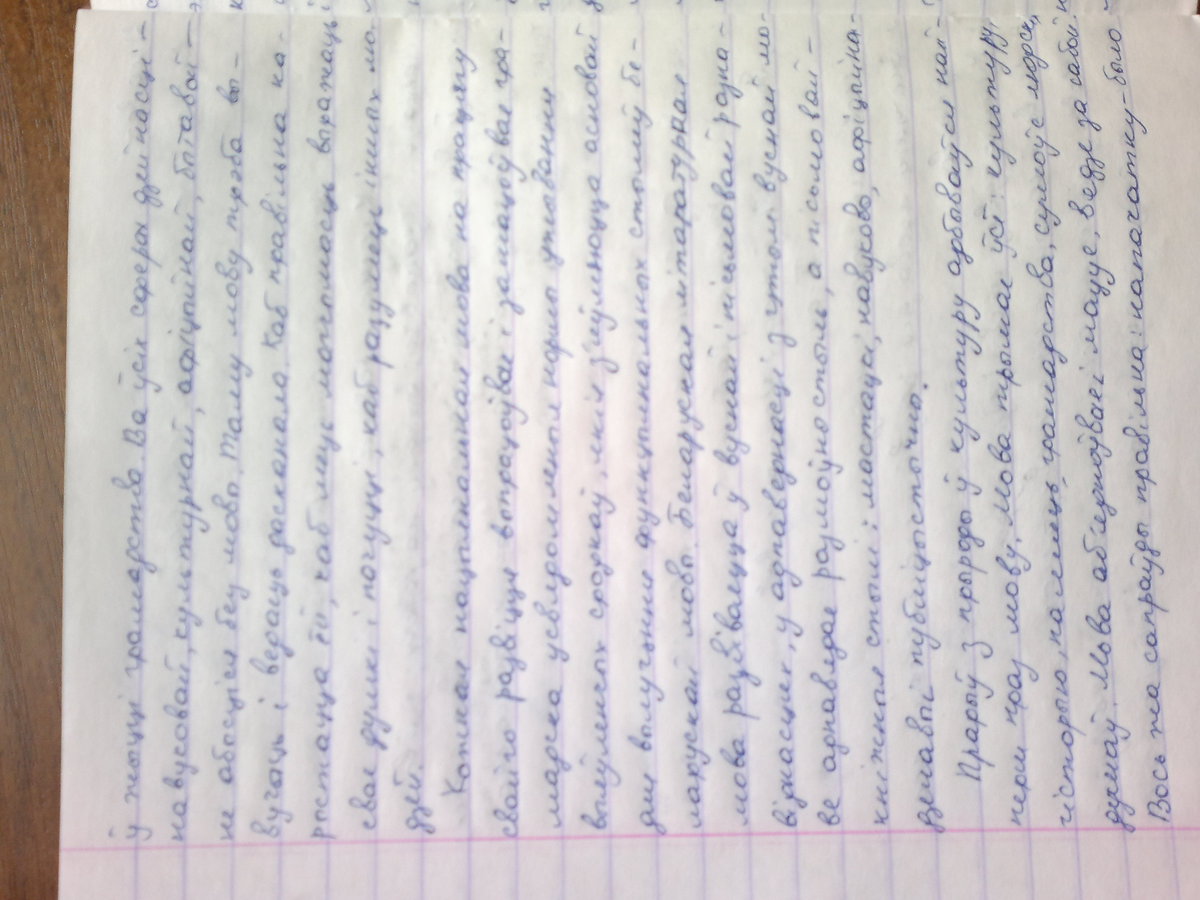 ў жыцці грамадства. Ва ўсіх сферах дзейнасці –
навуковай, культурнай, афіцыйнай, бытавой –
не абысціся без мовы. Таму мову трэба вы-
вучаць і ведаць дасканала. Каб правільна ка-
рыстацца ёй, каб мець магчымасць выражаць
свае думкі і пачуцці, каб разумець іншых лю-
дзей.
Кожная нацыянальная мова на працягу
свайго развіцця выпрацоўвае і замацоўвае гра-
мадска ўсвядомленыя нормы ўжывання
выяўленых сродкаў, якія з'яўляюцца асновай
для вылучэння функцыянальных стыляў бе-
ларускай мовы. Беларуская літаратурная
мова развіваецца ў вуснай і пісьмовай разна-
віднасцях, у адпаведнасці з гэтым вуснай мо-
ве адпавядае размоўны стыль, а пісьмовай –
кніжныя стылі: мастацкі, навуковы, афіцыйна-
дзелавы і публіцыстычны.
Прарыў з прыроды ў культуру адбываўся най-
перш праз мову. Мова трымае ўсё: культуру,
гісторыю, памяць, грамадства, сувязь, мараль,
духаў. Мова аб'ядноўвае і мацуе, вядзе за сабой.
Вось жа сапраўды правільна: напачатку – было